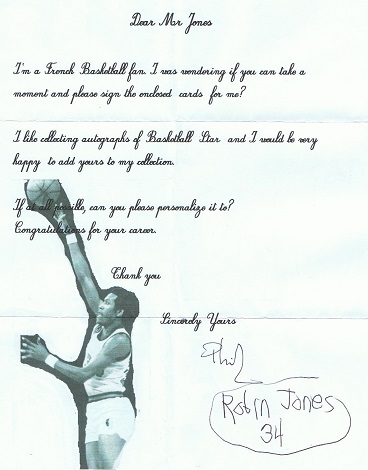 Dear Mr Jones
I'm a French Basketball fan. I was wondering if you can take a
moment and please sign the enclosed cards for me?
I like collecting autographs of Basketball Star and I would be very
happy to add yours to my collection.
If at all possible, can you please personalize it to?
Congratulations for your career.
Thank you
Sincerely Yours
Phil
Robin Jones
34